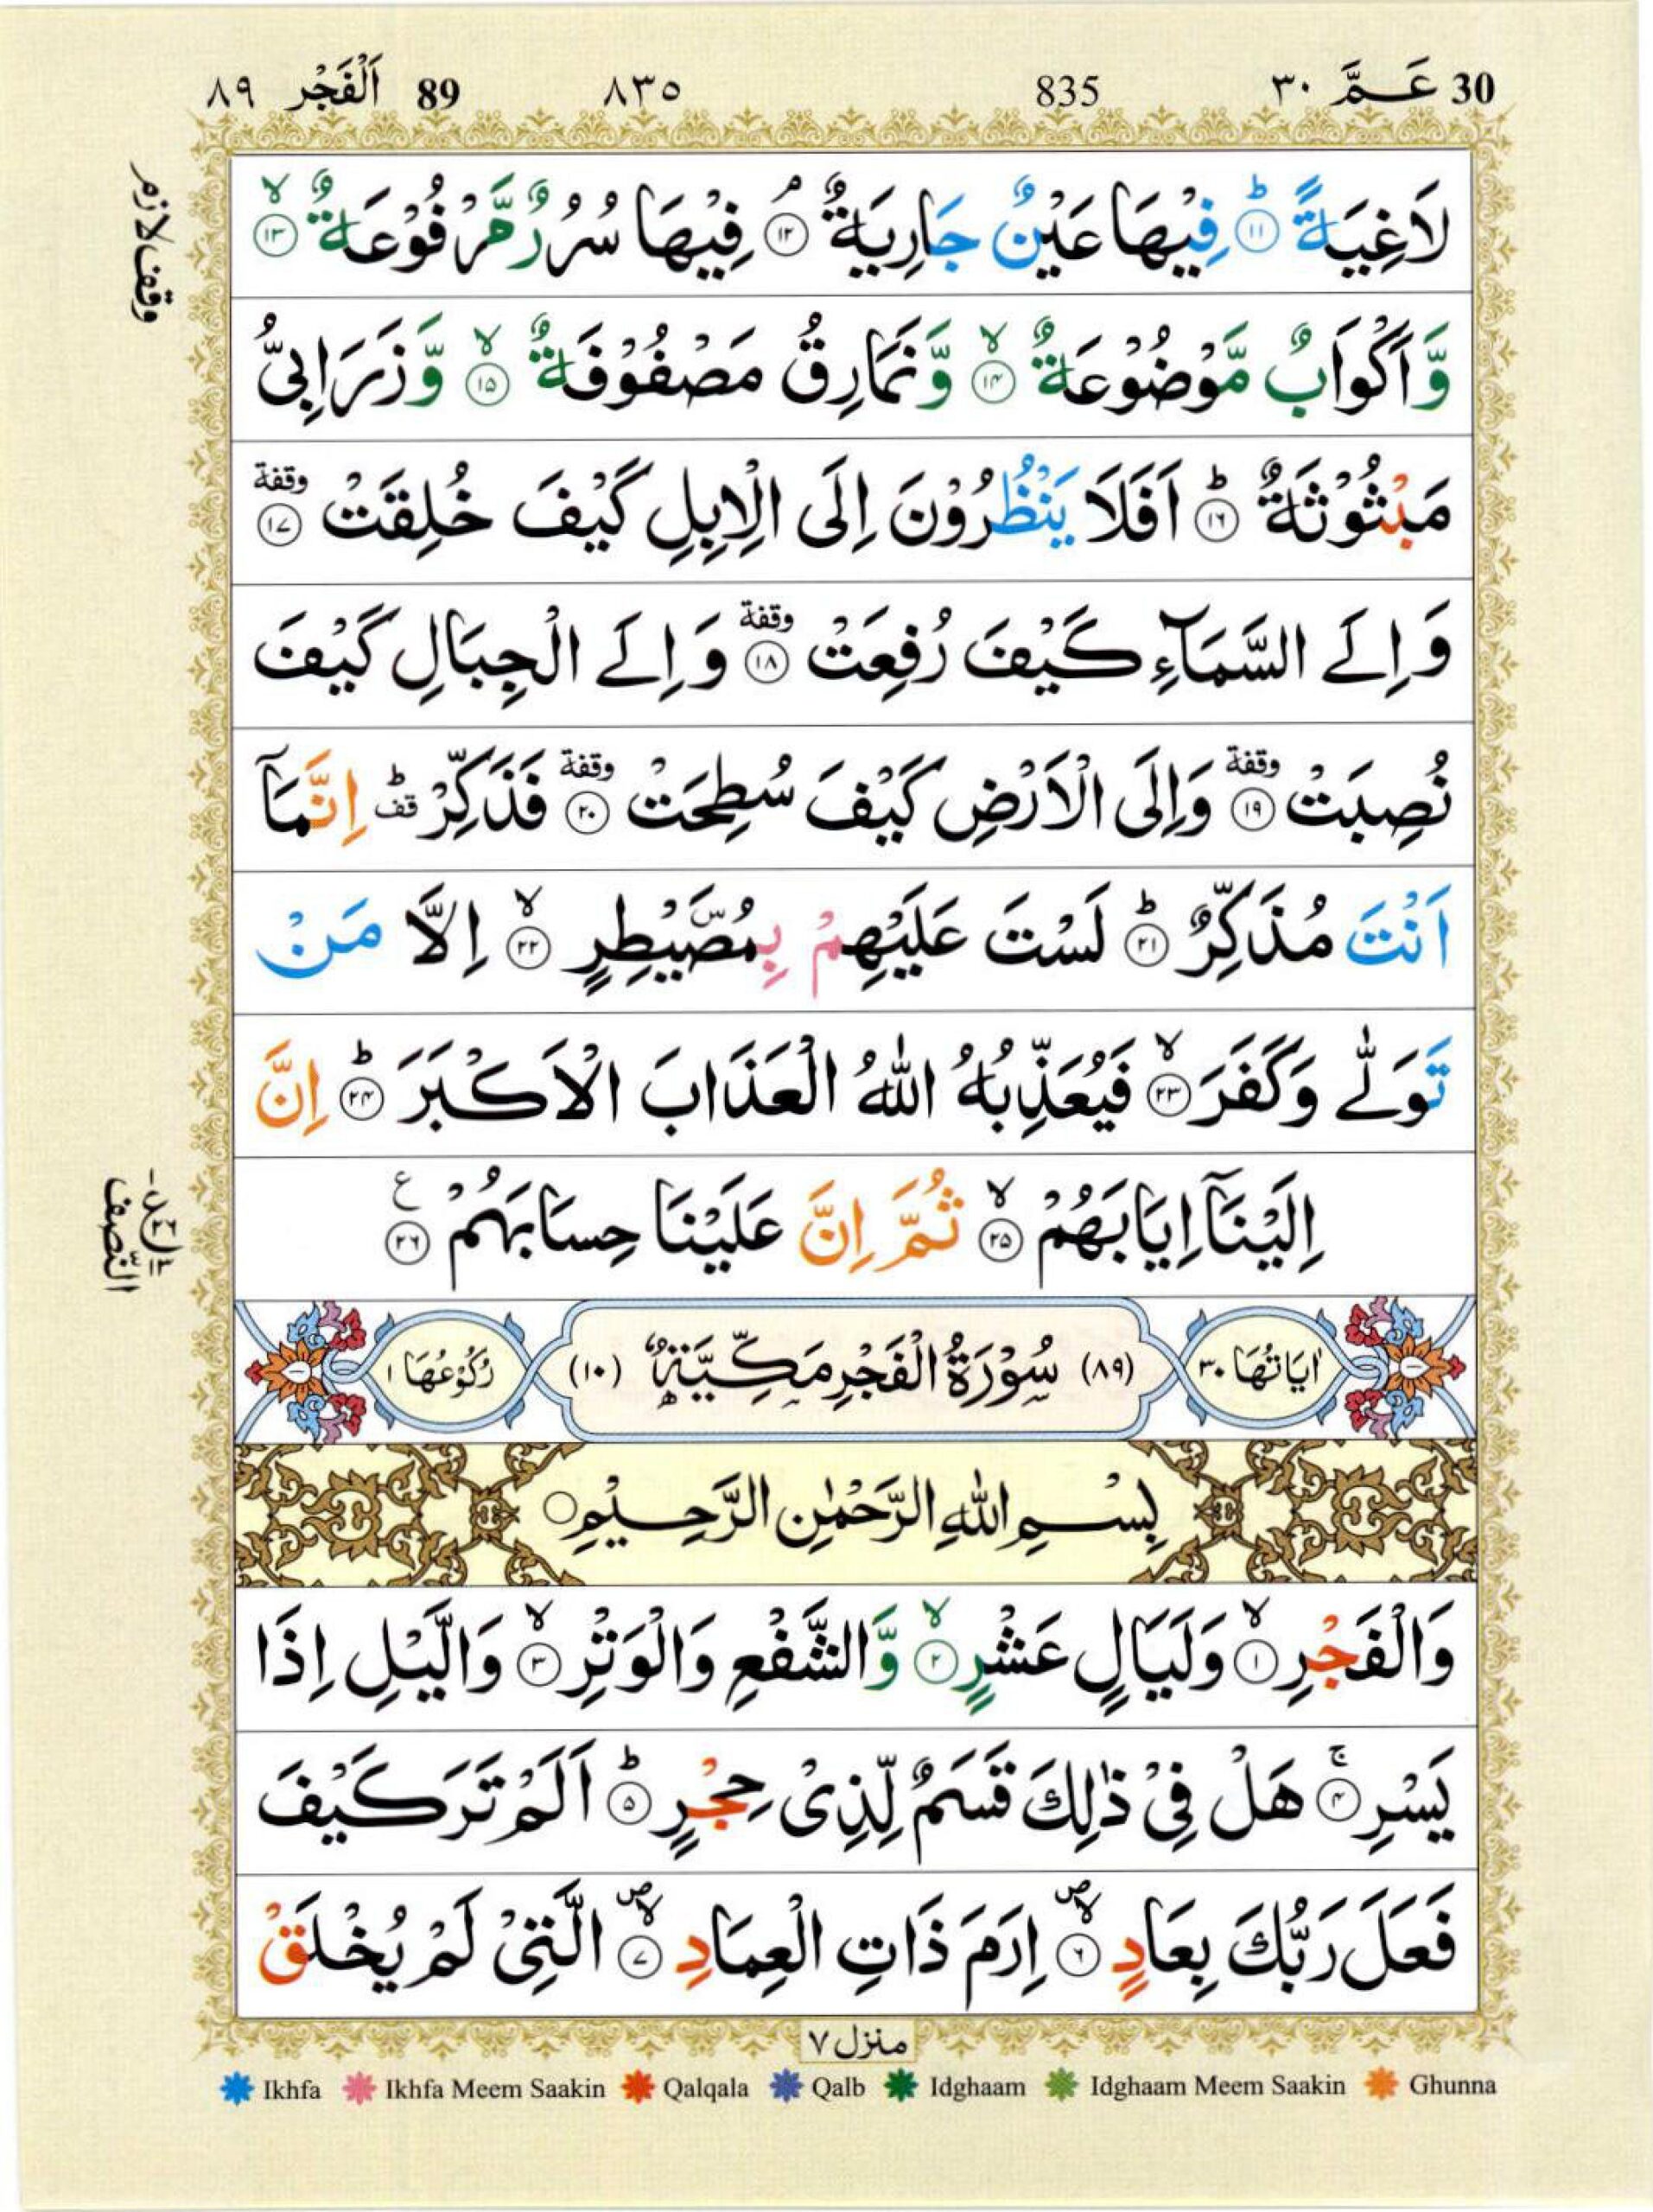 30 عَمَّ ٣٠ 835 ٨٣٥ 89 اَلْفَجْر ٨٩
لَاغِيَةً ؕ﴿۱۱﴾ فِيْهَا عَيْنٌ جَارِيَةٌ ۘ﴿۱۲﴾ فِيْهَا سُرُرٌ مَّرْفُوْعَةٌ ۙ﴿۱۳﴾
وقف لازم
وَّاَكْوَابٌ مَّوْضُوْعَةٌ ۙ﴿۱۴﴾ وَّنَمَارِقُ مَصْفُوْفَةٌ ۙ﴿۱۵﴾ وَّزَرَابِىُّ
مَبْثُوْثَةٌ ؕ﴿۱۶﴾ اَفَلَا يَنْظُرُوْنَ اِلَى الْاِبِلِ كَيْفَ خُلِقَتْ وقفة ﴿۱۷﴾
وَ اِلَى السَّمَآءِ كَيْفَ رُفِعَتْ وقفة ﴿۱۸﴾ وَ اِلَى الْجِبَالِ كَيْفَ
نُصِبَتْ وقفة ﴿۱۹﴾ وَاِلَى الْاَرْضِ كَيْفَ سُطِحَتْ وقفة ﴿۲۰﴾ فَذَكِّرْ ؕ قف اِنَّمَاۤ
اَنْتَ مُذَكِّرٌ ؕ﴿۲۱﴾ لَسْتَ عَلَيْهِمْ بِمُصَۜيْطِرٍ ۙ﴿۲۲﴾ اِلَّا مَنْ
تَوَلّٰى وَكَفَرَ ۙ﴿۲۳﴾ فَيُعَذِّبُهُ اللّٰهُ الْعَذَابَ الْاَكْبَرَ ؕ﴿۲۴﴾ اِنَّ
اِلَيْنَاۤ اِيَابَهُمْ ۙ﴿۲۵﴾ ثُمَّ اِنَّ عَلَيْنَا حِسَابَهُمْ ع ﴿۲۶﴾
النّصف
اٰيَاتُهَا ٣٠ (٨٩) سُوْرَةُ الْفَجْرِ مَكِّيَّةٌ (١٠) رُكُوْعُهَا ١
بِسْمِ اللّٰهِ الرَّحْمٰنِ الرَّحِيْمِ ○
وَالْفَجْرِ ۙ﴿۱﴾ وَلَيَالٍ عَشْرٍ ۙ﴿۲﴾ وَّالشَّفْعِ وَالْوَتْرِ ۙ﴿۳﴾ وَالَّيْلِ اِذَا
يَسْرِ ۚ﴿۴﴾ هَلْ فِىْ ذٰلِكَ قَسَمٌ لِّذِىْ حِجْرٍ ؕ﴿۵﴾ اَلَمْ تَرَ كَيْفَ
فَعَلَ رَبُّكَ بِعَادٍ ۙص ﴿۶﴾ اِرَمَ ذَاتِ الْعِمَادِ ۙص ﴿۷﴾ الَّتِىْ لَمْ يُخْلَقْ
منزل ٧
Ikhfa Ikhfa Meem Saakin Qalqala Qalb Idghaam Idghaam Meem Saakin Ghunna